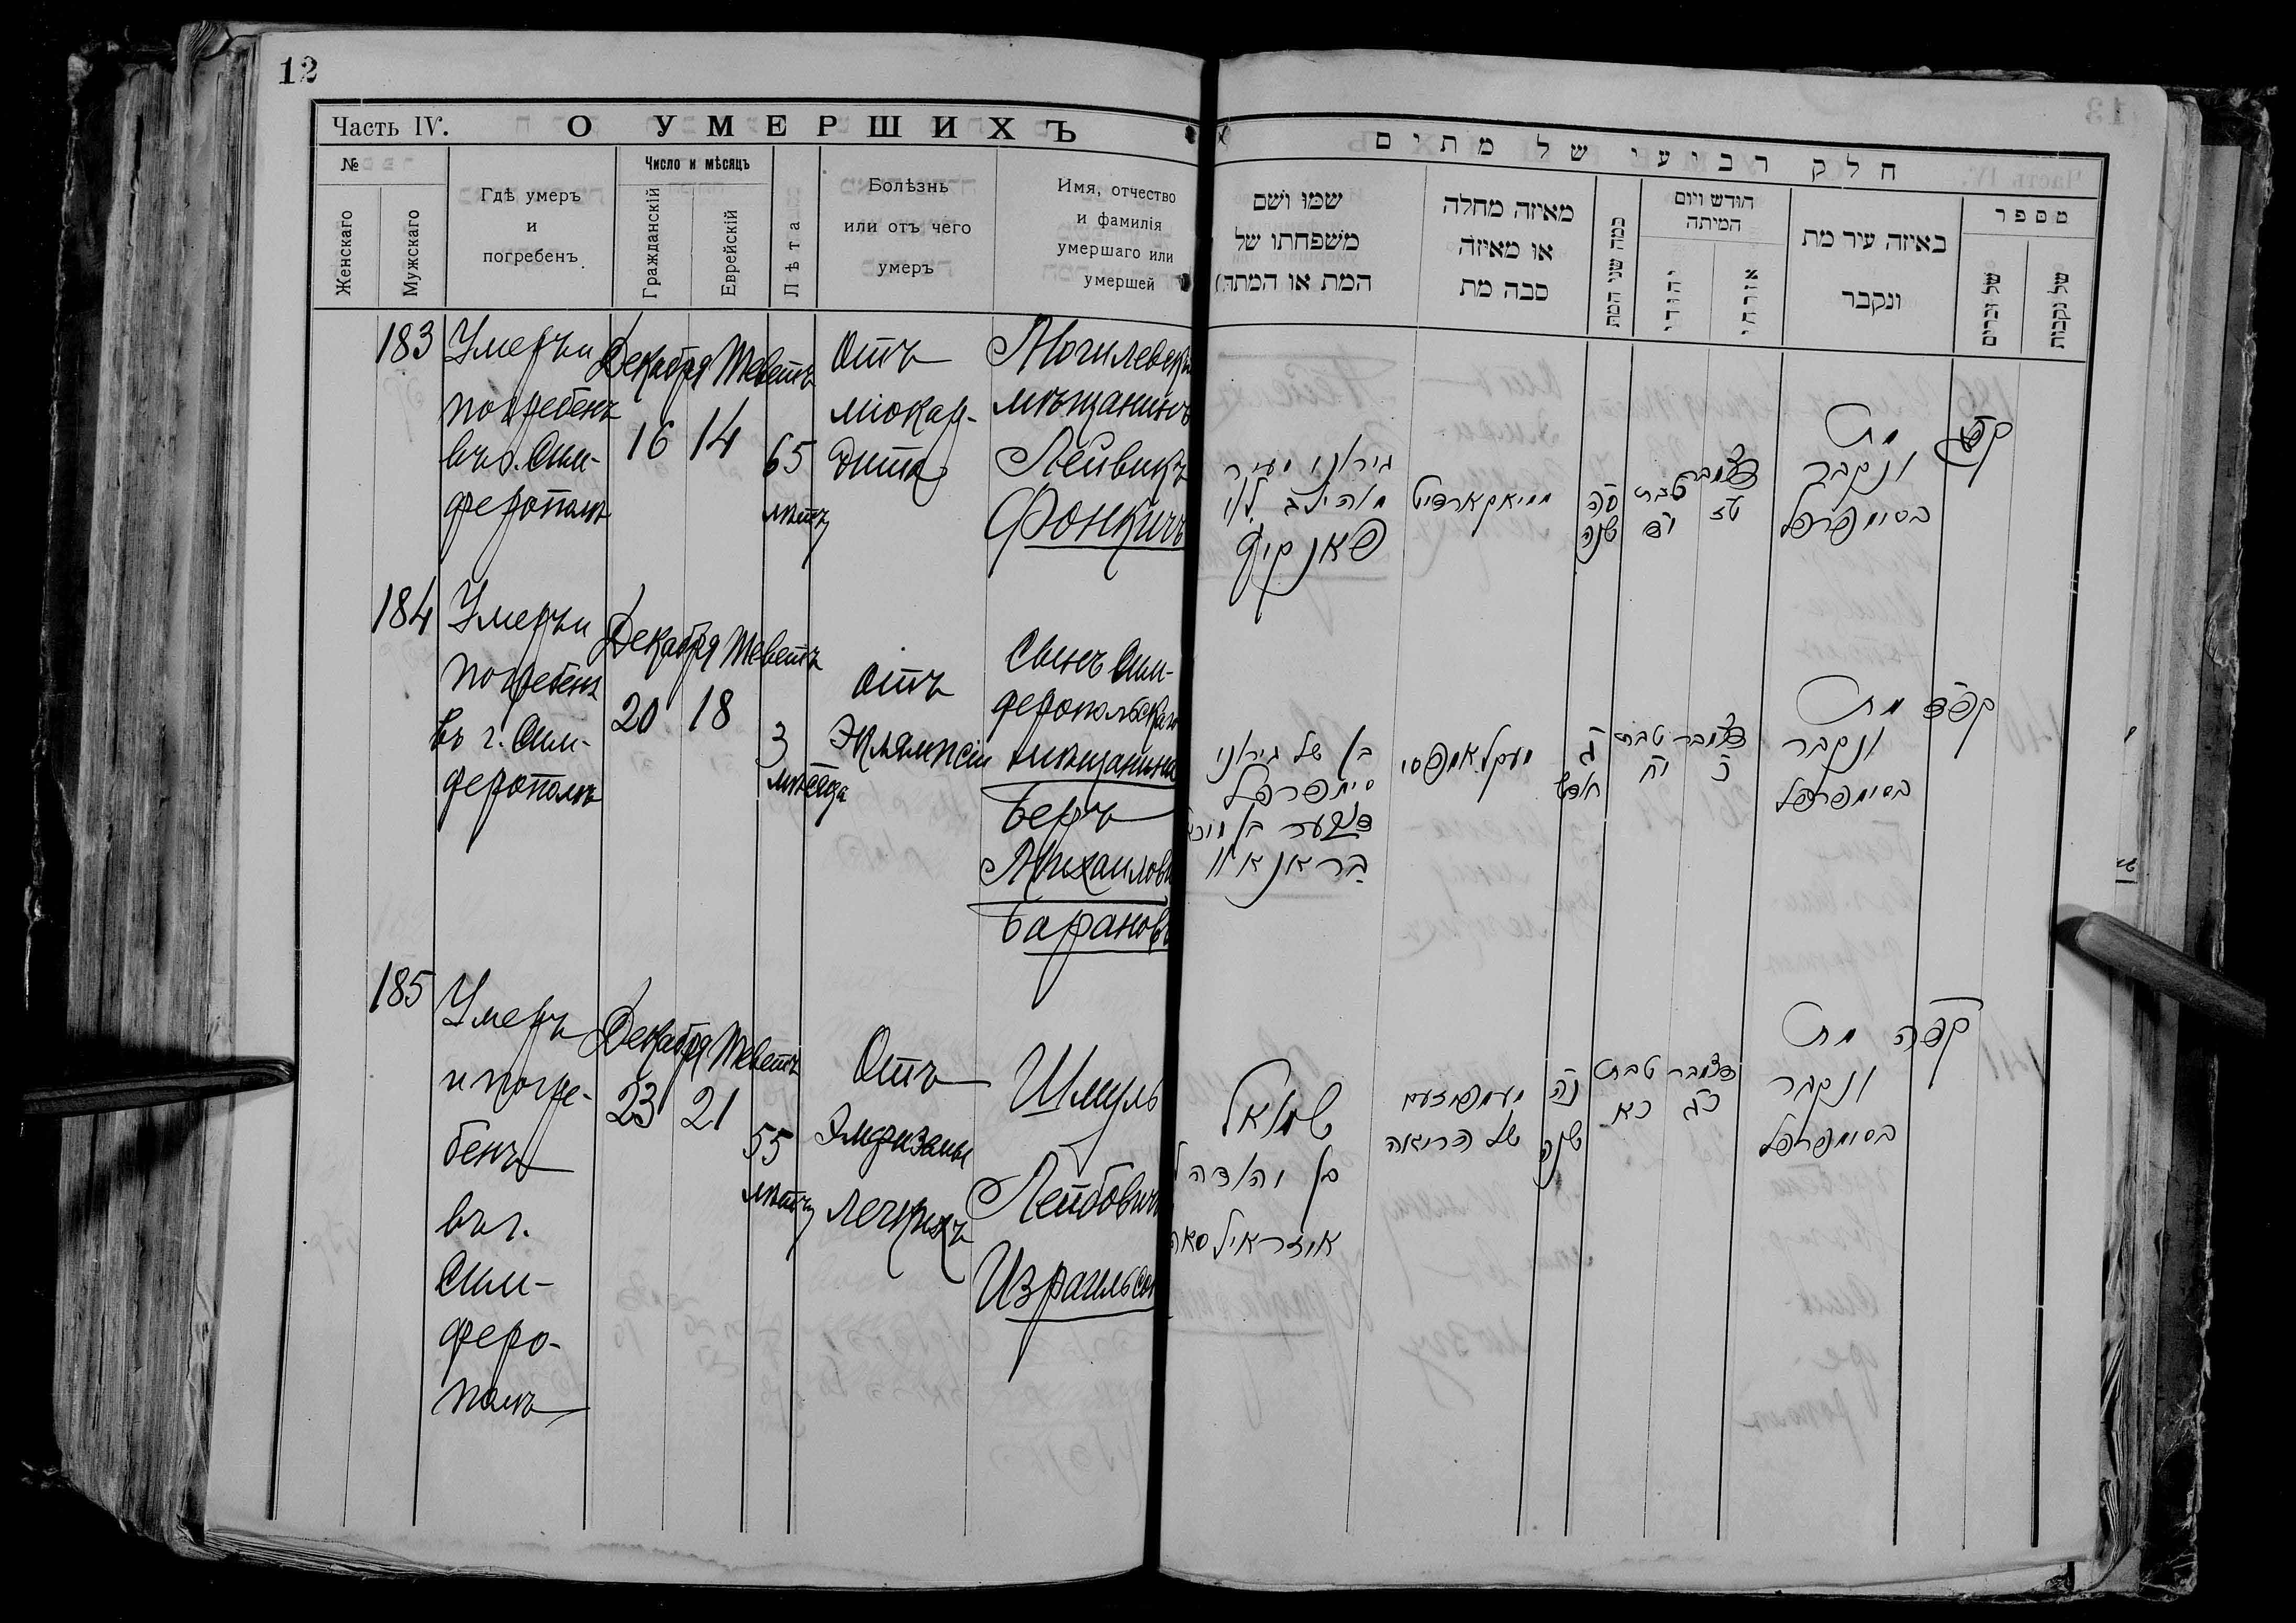 12
Часть IV. О УМЕРШИХЪ
№
Женскаго
Мужскаго
Гдѣ умеръ
и
погребенъ
Число и мѣсяцъ
Гражданскій
Еврейскій
Лѣта
Болѣзнь
или отъ чего
умеръ
Имя, отчество
и фамилія
умершаго или
умершей
183
Умеръ и
погребенъ
въ г. Сим-
ферополѣ
Декабря
16
Теветъ
14
65
лѣтъ
Отъ
міокар-
дита
Могилевскі
мѣщанинъ
Лейвикъ
Фонкичъ
184
Умеръ и
погребенъ
въ г. Сим-
ферополѣ
Декабря
20
Теветъ
18
3
мѣсяца
Отъ
Эклямпсіи
Сынъ Сим-
феропольскаго
мѣщанина
Беръ
Михаилови
Барановъ
185
Умеръ
и погре-
бенъ
въ г.
Сим-
феро-
полѣ
Декабря
23
Теветъ
21
55
лѣтъ
Отъ
Эмфиземы
легкихъ
Шмуль
Лейбовичъ
Израильсон
חלק רביעי של מתים
מספר
של נקבות
של זכרים
באיזה עיר מת
ונקבר
חודש ויום
המיתה
אזרחי
יהודי
כמה שני המת
מאיזה מחלה
או מאיזה
סבה מת
שמו ושם
משפחתו של
המת או המתה)
מת
ונקבר
בסימפרפל
דצמבר
טז
טבת
יד
סה
שנה
מיאקארדיט
פאנקיץ
קפד
מת
ונקבר
בסימפרפל
דצמבר
כ
טבת
יח
ג
חודש
בן של
סימפרפל
בראנאוו
קפה
מת
ונקבר
בסימפרפל
דצמבר
כג
טבת
כא
נה
שנה
של הריאה
שמואל
בן